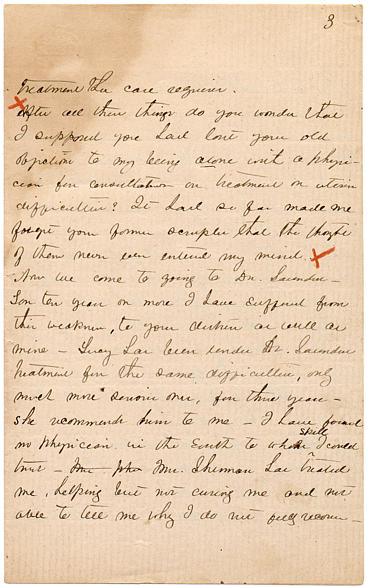 3
treatment the case requires.
After all these things do you wonder that
I supposed you had lost your old
objection to my being alone with a physi-
cian for consultation or treatment on uterine
difficulties? It had so far made me
forget your former scruples that the thought
of them never even entered my mind.
Now we come to going to Dr. Saunders -
For ten years or more I have suffered from
this weakness, to your distress as well as
mine - Lucy has been under Dr. Saunders
treatment for the same difficulties, only
much more serious ones, for three years -
she recommends him to me - I have found
no physician in the South to whose skill I could
trust - Mrs. Sherman has treated
me, helping but not curing me and not
able to tell me why I do not fully recover -